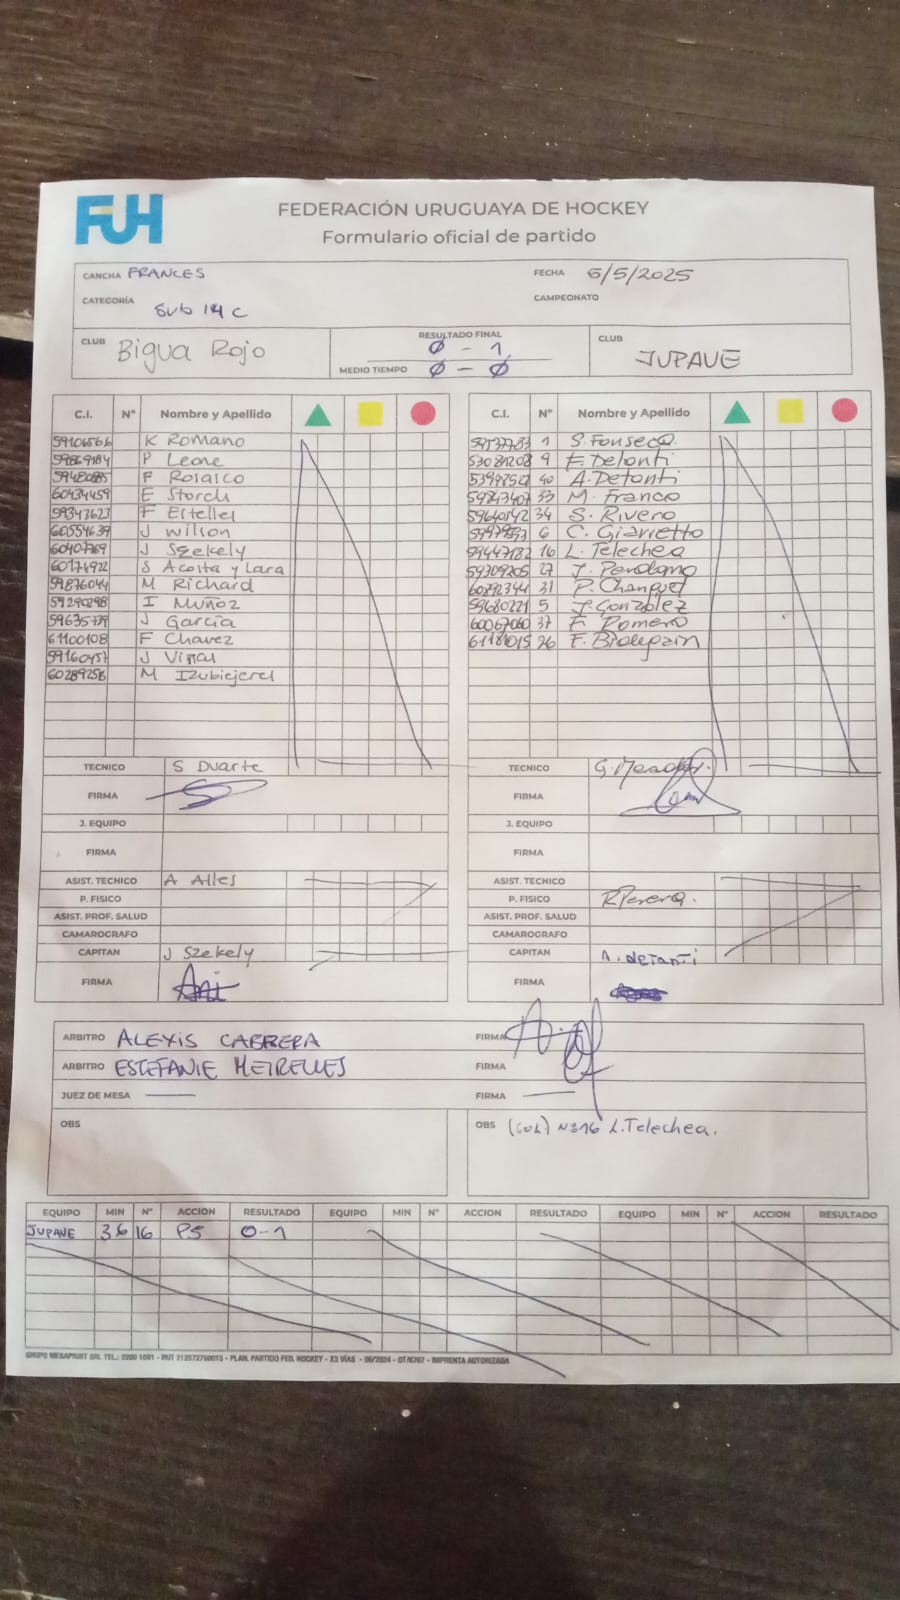 FUH
FEDERACIÓN URUGUAYA DE HOCKEY
Formulario oficial de partido
CANCHA FRANCES FECHA 6/5/2025
CATEGORÍA Sub 14 C CAMPEONATO
CLUB Bigua Rojo RESULTADO FINAL 0 - 1 CLUB JUPAVE
MEDIO TIEMPO 0 - 0
C.I. Nº Nombre y Apellido C.I. Nº Nombre y Apellido
K Romano 1 S. Fonseca
P Leone 53081208 9 F. Detonti
F Rosaico 40 A. Detonti
60434459 E Storch 33 M. Franco
59343623 F Estellel 34 S. Rivero
60554639 J Wilson 6 C. Giarretto
60407769 J Szekely 59447132 16 L. Telechea
60174922 S Acosta y Lara 59309205 27 J. Perdomo
59876044 M Richard 60292344 31 P. Changuet
59290298 I Muñoz 59680221 5 J. González
J García 60067060 37 F. Romero
61100108 F Chavez 61181015 26 F.
J Viñas
M
TECNICO S Duarte TECNICO
FIRMA FIRMA
J. EQUIPO J. EQUIPO
FIRMA FIRMA
ASIST. TECNICO A Alles ASIST. TECNICO
P. FISICO P. FISICO R Perera.
ASIST. PROF. SALUD ASIST. PROF. SALUD
CAMAROGRAFO CAMAROGRAFO
CAPITAN J Szekely CAPITAN A. DETANTI
FIRMA FIRMA
ARBITRO ALEXIS CABRERA FIRMA
ARBITRO ESTEFANIE MEIRELLES FIRMA
JUEZ DE MESA FIRMA
OBS OBS (GOL) Nº16 L. Telechea.
EQUIPO MIN Nº ACCION RESULTADO EQUIPO MIN Nº ACCION RESULTADO EQUIPO MIN Nº ACCION RESULTADO
JUPAVE 36 16 PS 0-1
GRUPO MEGAPRINT SRL TEL.: 2200 1001 - RUT 212572760015 - PLAN. PARTIDO FED. HOCKEY - X3 VÍAS - 06/2024 - - IMPRENTA AUTORIZADA